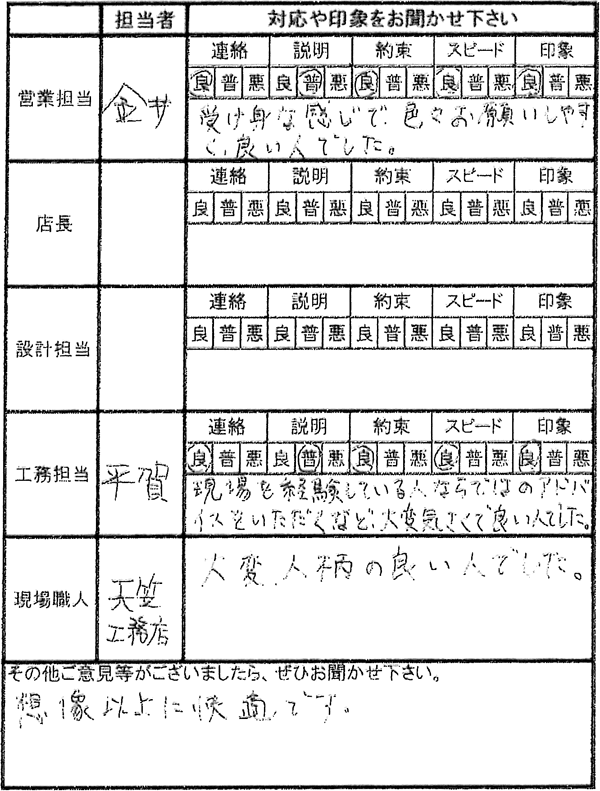 担当者 対応や印象をお聞かせ下さい
連絡 説明 約束 スピード 印象
営業担当 金井 良 普 悪 良 普 悪 良 普 悪 良 普 悪 良 普 悪
受け身な感じで、色々お願いしやす
く、良い人でした。
連絡 説明 約束 スピード 印象
店長 良 普 悪 良 普 悪 良 普 悪 良 普 悪 良 普 悪
連絡 説明 約束 スピード 印象
設計担当 良 普 悪 良 普 悪 良 普 悪 良 普 悪 良 普 悪
連絡 説明 約束 スピード 印象
工務担当 平賀 良 普 悪 良 普 悪 良 普 悪 良 普 悪 良 普 悪
現場を経験している人ならではのアドバ
イスをいただくなど、大変気さくで良い人でした。
現場職人 天笠
工務店
大変人柄の良い人でした。
その他ご意見等がございましたら、ぜひお聞かせ下さい。
想像以上に快適です。